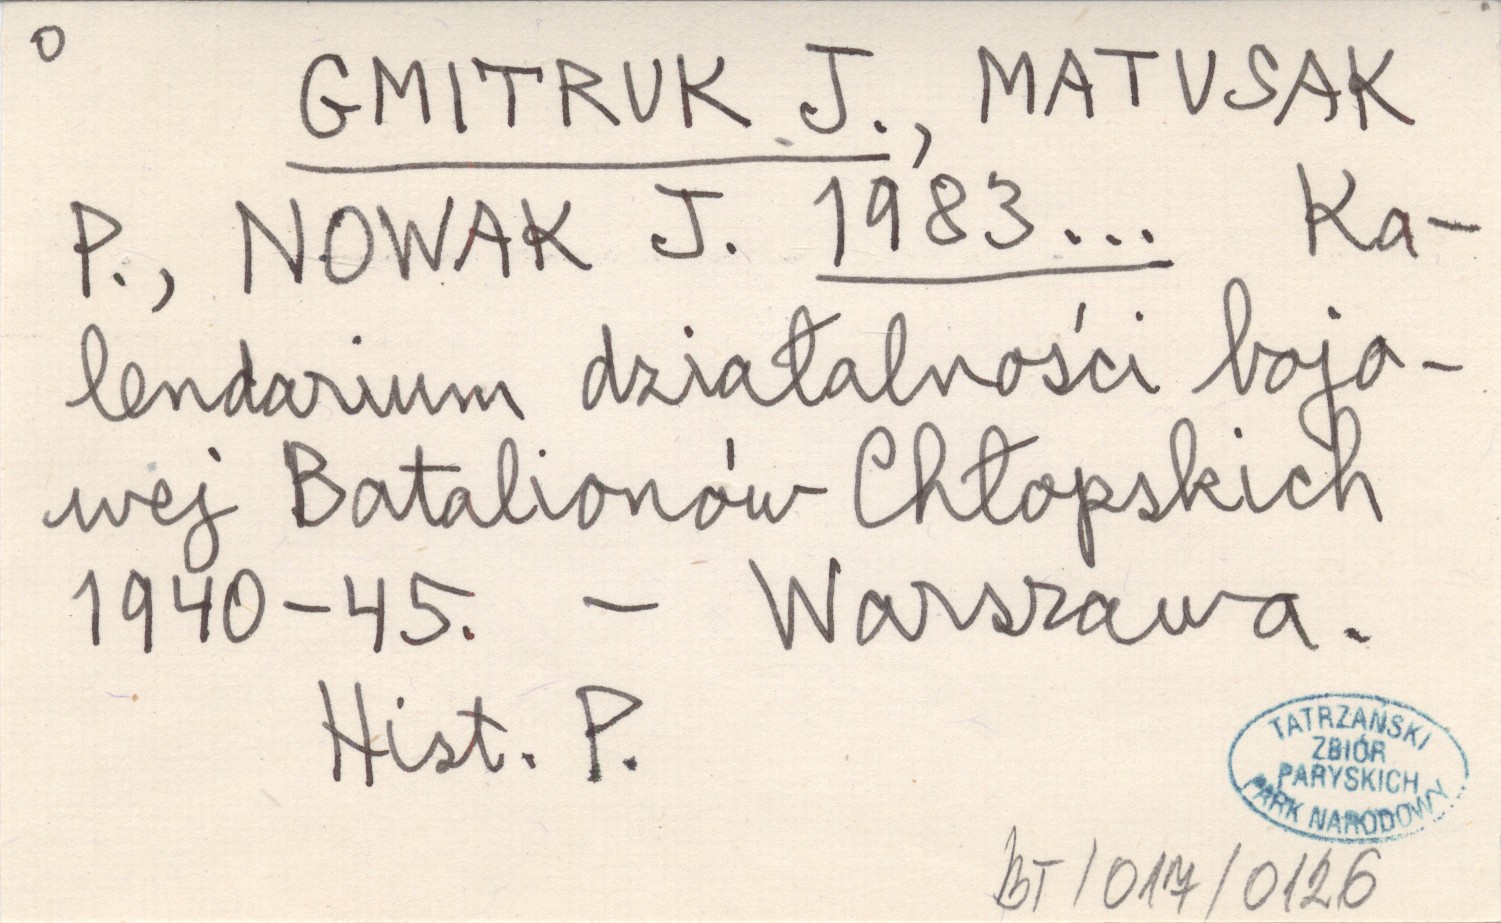 o
GMITRUK J., MATUSAK
P., NOWAK J. 1983... Ka-
lendarium działalności bojo-
wej Batalionów Chłopskich
1940-45. - Warszawa.
Hist. P.
TATRZAŃSKI
ZBIÓR
PARYSKICH
PARK NARODOWY
BT/017/0126